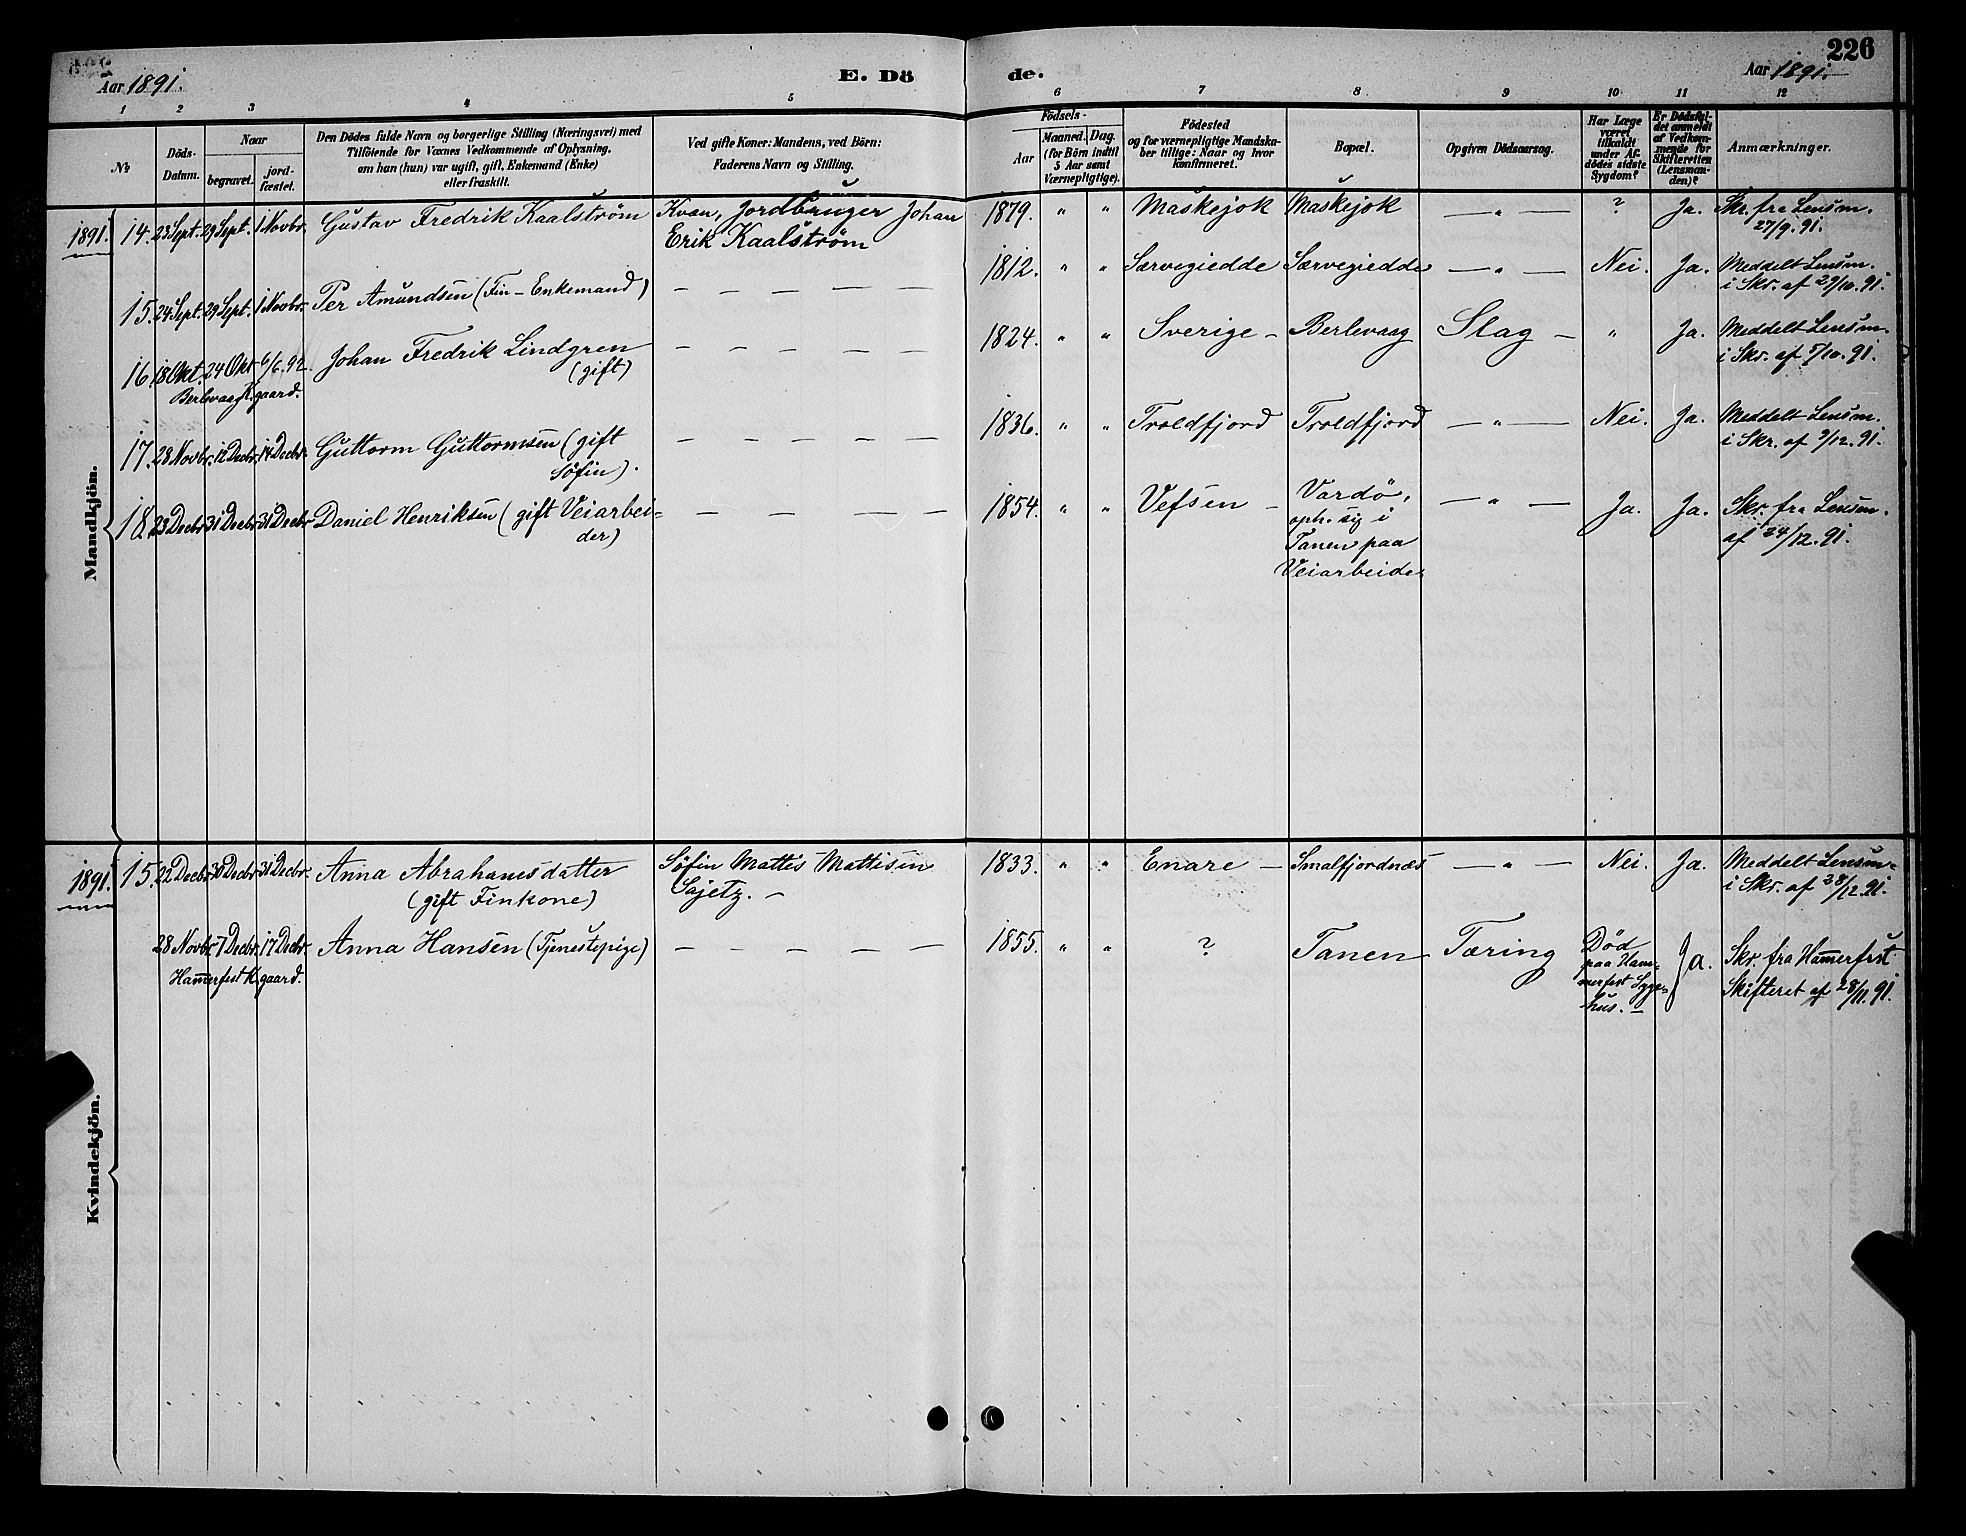 Aar 1891. E. Dö de. Aar 1891. 226
1 2 3 4 5 6 7 8 9 10 11 12
№
Döds-Datum.
Naar
begravet.
jord-fæstet.
Den Dödes fulde Navn og borgerlige Stilling (Næringsvei) med
Tilföiende for Voxnes Vedkommende af Oplysning,
om han (hun) var ugift, gift, Enkemand (Enke)
eller fraskilt.
Ved gifte Koner: Mandens, ved Börn:
Faderens Navn og Stilling.
Födsels-
Aar
Maaned. Dag.
(for Börn indtil
5 Aar samt
Værnepligtige).
Födested
og for værnepligtige Mandska-
ber tillige: Naar og hvor
konfirmeret.
Bopæl.
Opgiven Dödsaarsag.
Har Læge
været
tilkaldt
under Af-
dödes sidste
Sygdom?
Er Dödsfal-
det anmeldt
af Vedkom-
mende for
Skifteretten
(Lensman-
den)?
Anmærkninger.
Mandkjön.
1891. 14. 23 Sept. 29 Sept. 1 Novbr. Gustav Fredrik Kaalström Kvæn, Jordbruger Johan 1879. " " Maskejok Maskejok — " — ? Ja. Skr. fra Lensm.
Erik Kaalström 27/9. 91.
15. 24 Sept. 29 Sept. 1 Novbr. Per Amundsen (Fin - Enkemand) — — — — — 1812. " " Særvegiedde Særvegiedde — " — Nei. Ja. Meddelt Lensm.
i Skr. af 29/10. 91.
16. 18 Okt. 24 Okt. 6/6. 92. Johan Fredrik Lindgren — — — — — 1824. " " Sverige - Berlevaag Slag - " Ja. Meddelt Lensm.
Berlevaag K.gaard. (gift) i Skr. af 5/10. 91.
17. 28 Novbr. 12 Decbr. 14 Decbr. Guttorm Guttormsen (gift — — — — — 1836. " " Troldfjord Troldfjord — " — Nei. Ja. Meddelt Lensm.
Söfin). i Skr. af 9/12. 91.
18. 23 Decbr. 31 Decbr. 31 Decbr. Daniel Henriksen (gift Veiarbei- — — — — — 1854. " " Vefsen - Vardö, — " — Ja. Ja. Skr. fra Lensm.
der) oph. sig i af 24/12. 91.
Tanen paa
Veiarbeide.
Kvindekjön.
1891. 15. 22 Decbr. 30 Decbr. 31 Decbr. Anna Abrahamsdatter Söfin Mattis Mattisen 1833. " " Enare - Smalfjordnæs — " — Nei. Ja. Meddelt Lensm.
(gift Finkone) Sajetz. - i Skr. af 28/12. 91.
28 Novbr. 7 Decbr. 17 Decbr. Anna Hansen (Tjenestepige) — — — — — 1855. " " ? Tanen Tæring Död Ja. Skr. fra Hamerfest
Hamerfest K.gaard. paa Ham- Skifteret af 28/11. 91.
merfest Syge-
hus. —